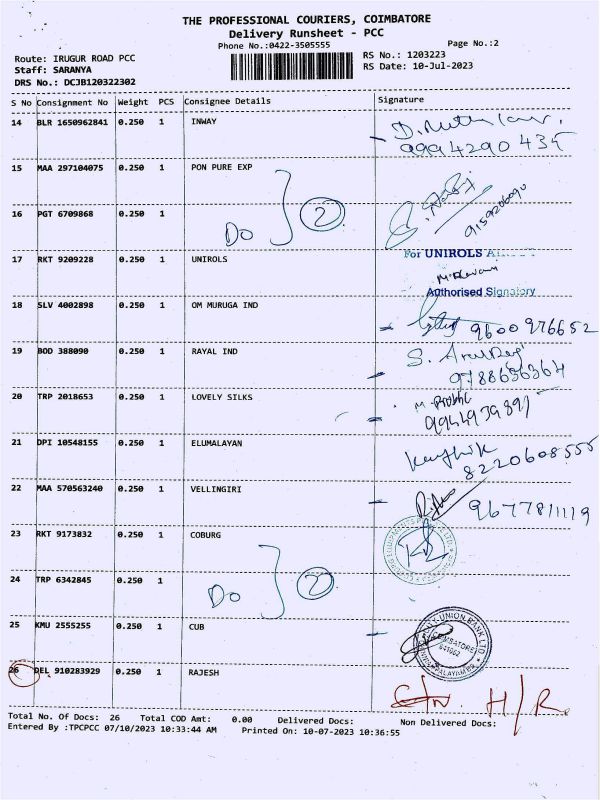 THE PROFESSIONAL COURIERS, COIMBATORE
Delivery Runsheet - PCC
Phone No.:0422-3505555
Page No.:2
Route: IRUGUR ROAD PCC
RS No.: 1203223
Staff: SARANYA
RS Date: 10-Jul-2023
DRS No.: DCJB120322302
S No Consignment No Weight PCS Consignee Details Signature
14 BLR 1650962841 0.250 1 INWAY
9994290435
15 MAA 297104075 0.250 1 PON PURE EXP
16 PGT 6709868 0.250 1
Do 2
9159206090
17 RKT 9209228 0.250 1 UNIROLS
For UNIROLS
Authorised Signatory
18 SLV 4002898 0.250 1 OM MURUGA IND
9600976652
19 BOD 388090 0.250 1 RAYAL IND
9788636364
20 TRP 2018653 0.250 1 LOVELY SILKS
21 DPI 10548155 0.250 1 ELUMALAYAN
Karthik
8220608555
22 MAA 570563240 0.250 1 VELLINGIRI
9677811119
23 RKT 9173832 0.250 1 COBURG
24 TRP 6342845 0.250 1
Do 2
25 KMU 2555255 0.250 1 CUB
UNION BANK LTD
COIMBATORE
26 DEL 910283929 0.250 1 RAJESH
H/R
Total No. Of Docs: 26 Total COD Amt: 0.00 Delivered Docs: Non Delivered Docs:
Entered By :TPCPCC 07/10/2023 10:33:44 AM Printed On: 10-07-2023 10:36:55